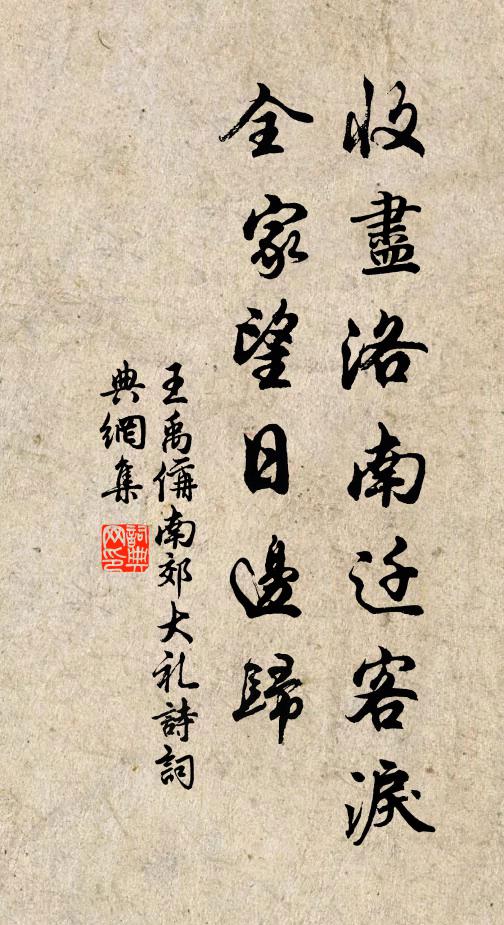 收盡洛南迁客淚
全家望日邊歸
王禹偁南郊大礼詩詞
典網集
詞典网印